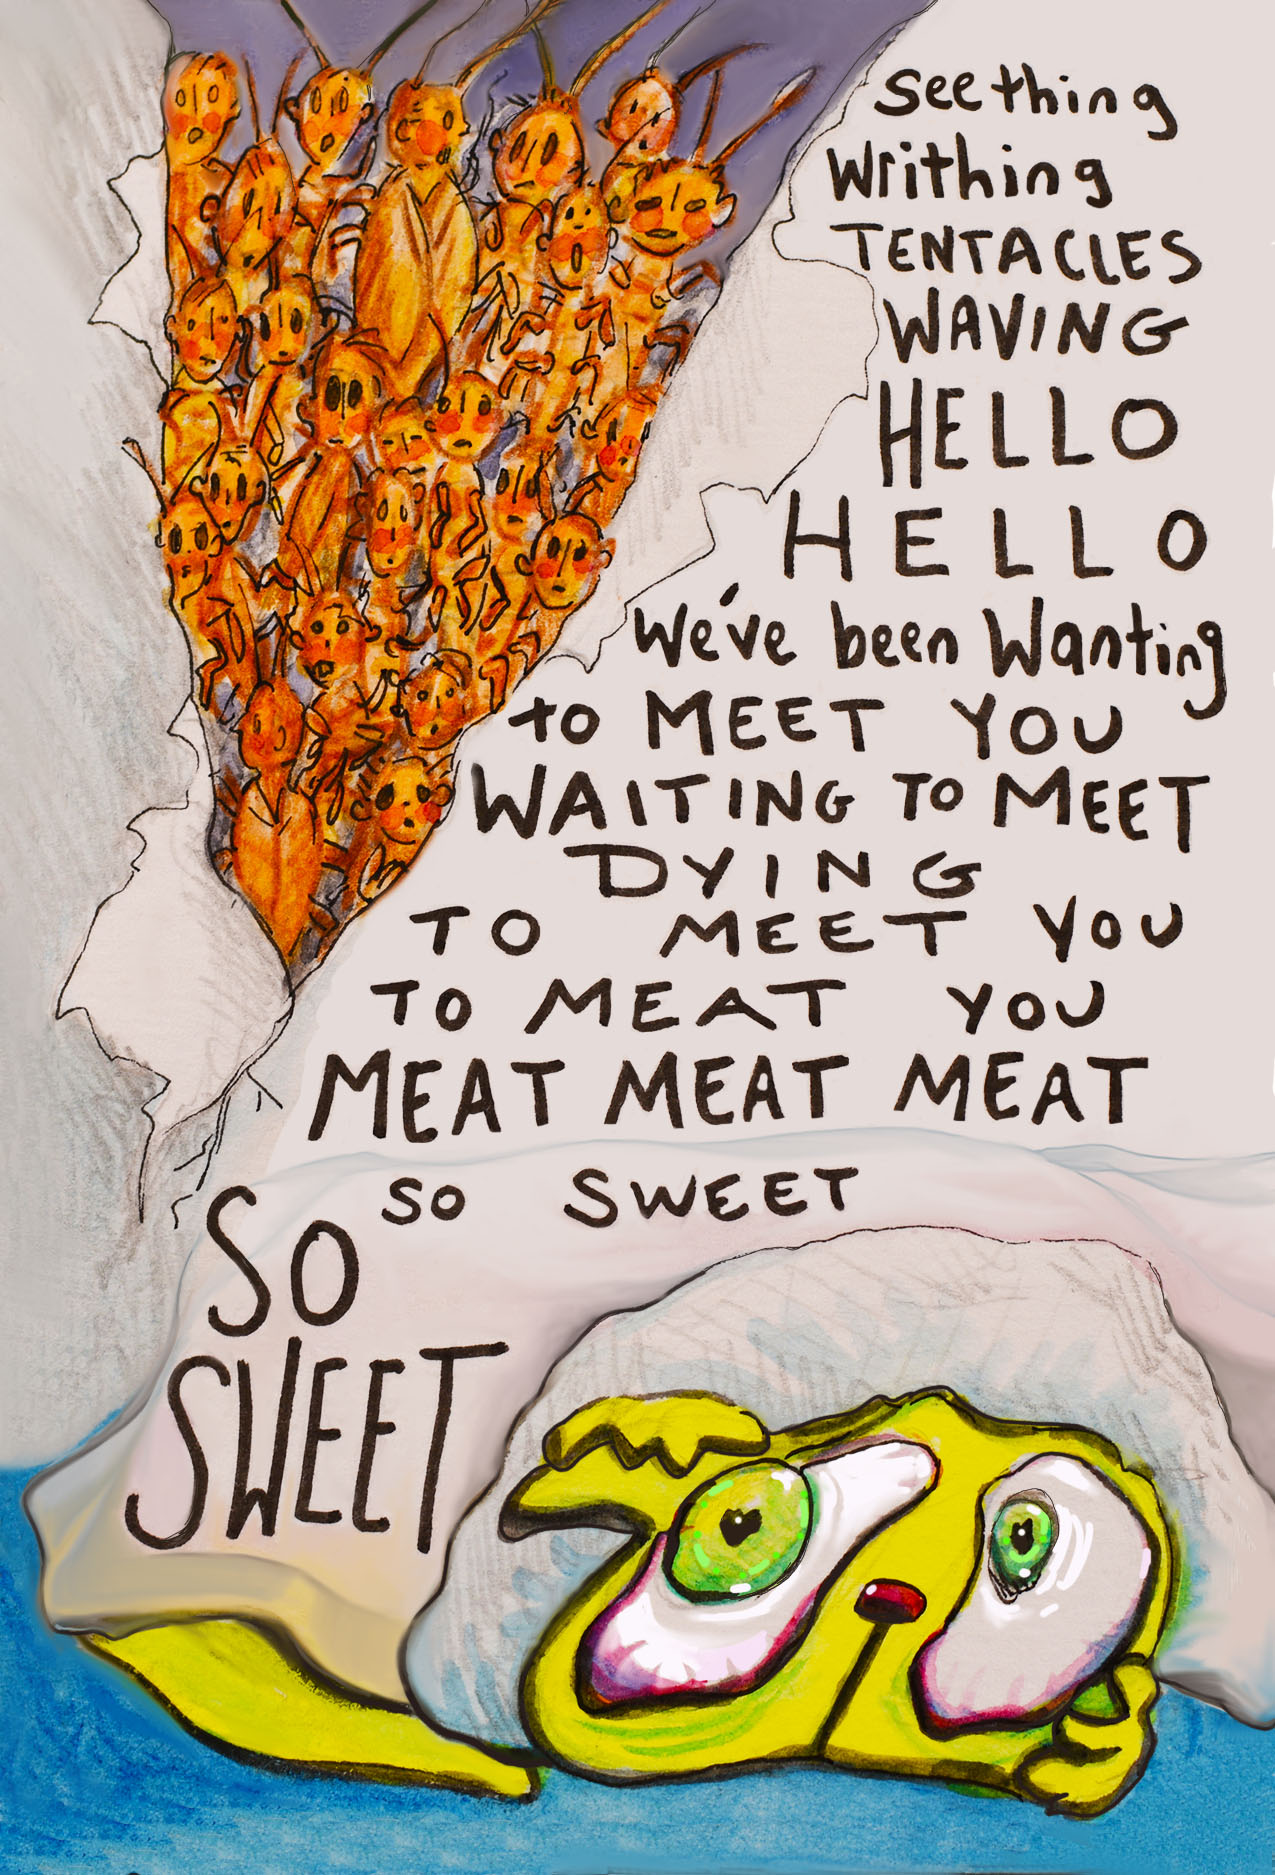 seething
writhing
TENTACLES
WAVING
HELLO
HELLO
We've been Wanting
to MEET YOU
WAITING TO MEET
DYING
TO MEET YOU
TO MEAT YOU
MEAT MEAT MEAT
SO SWEET
SO
SWEET